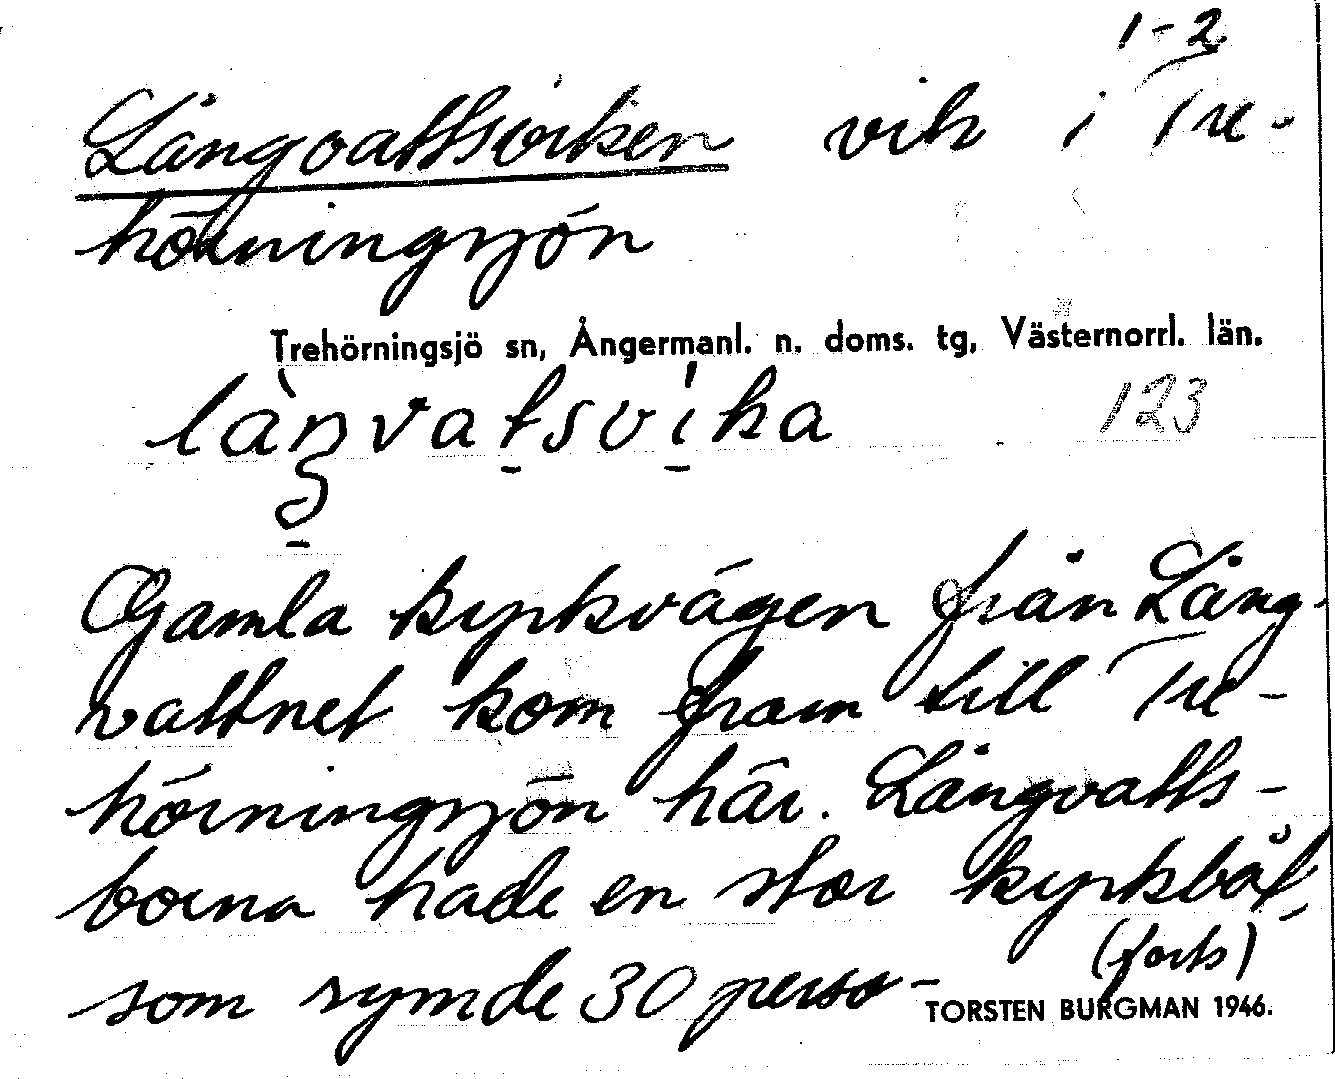 1-2
Långvattsviken vik i Tre-
hörningsjön
Trehörningsjö sn, Ångermanl. n. doms. tg, Västernorrl. län.
làŋvatsvika 123
Gamla kyrkvägen från Lång-
vattnet kom fram till Tre-
hörningsjön här. Långvatts-
borna hade en stor kyrkbåt,
som rymde 30 perso-
(forts)
TORSTEN BURGMAN 1946.